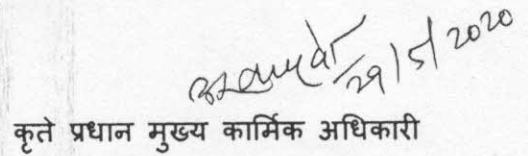 29/5/2020
कृते प्रधान मुख्य कार्मिक अधिकारी